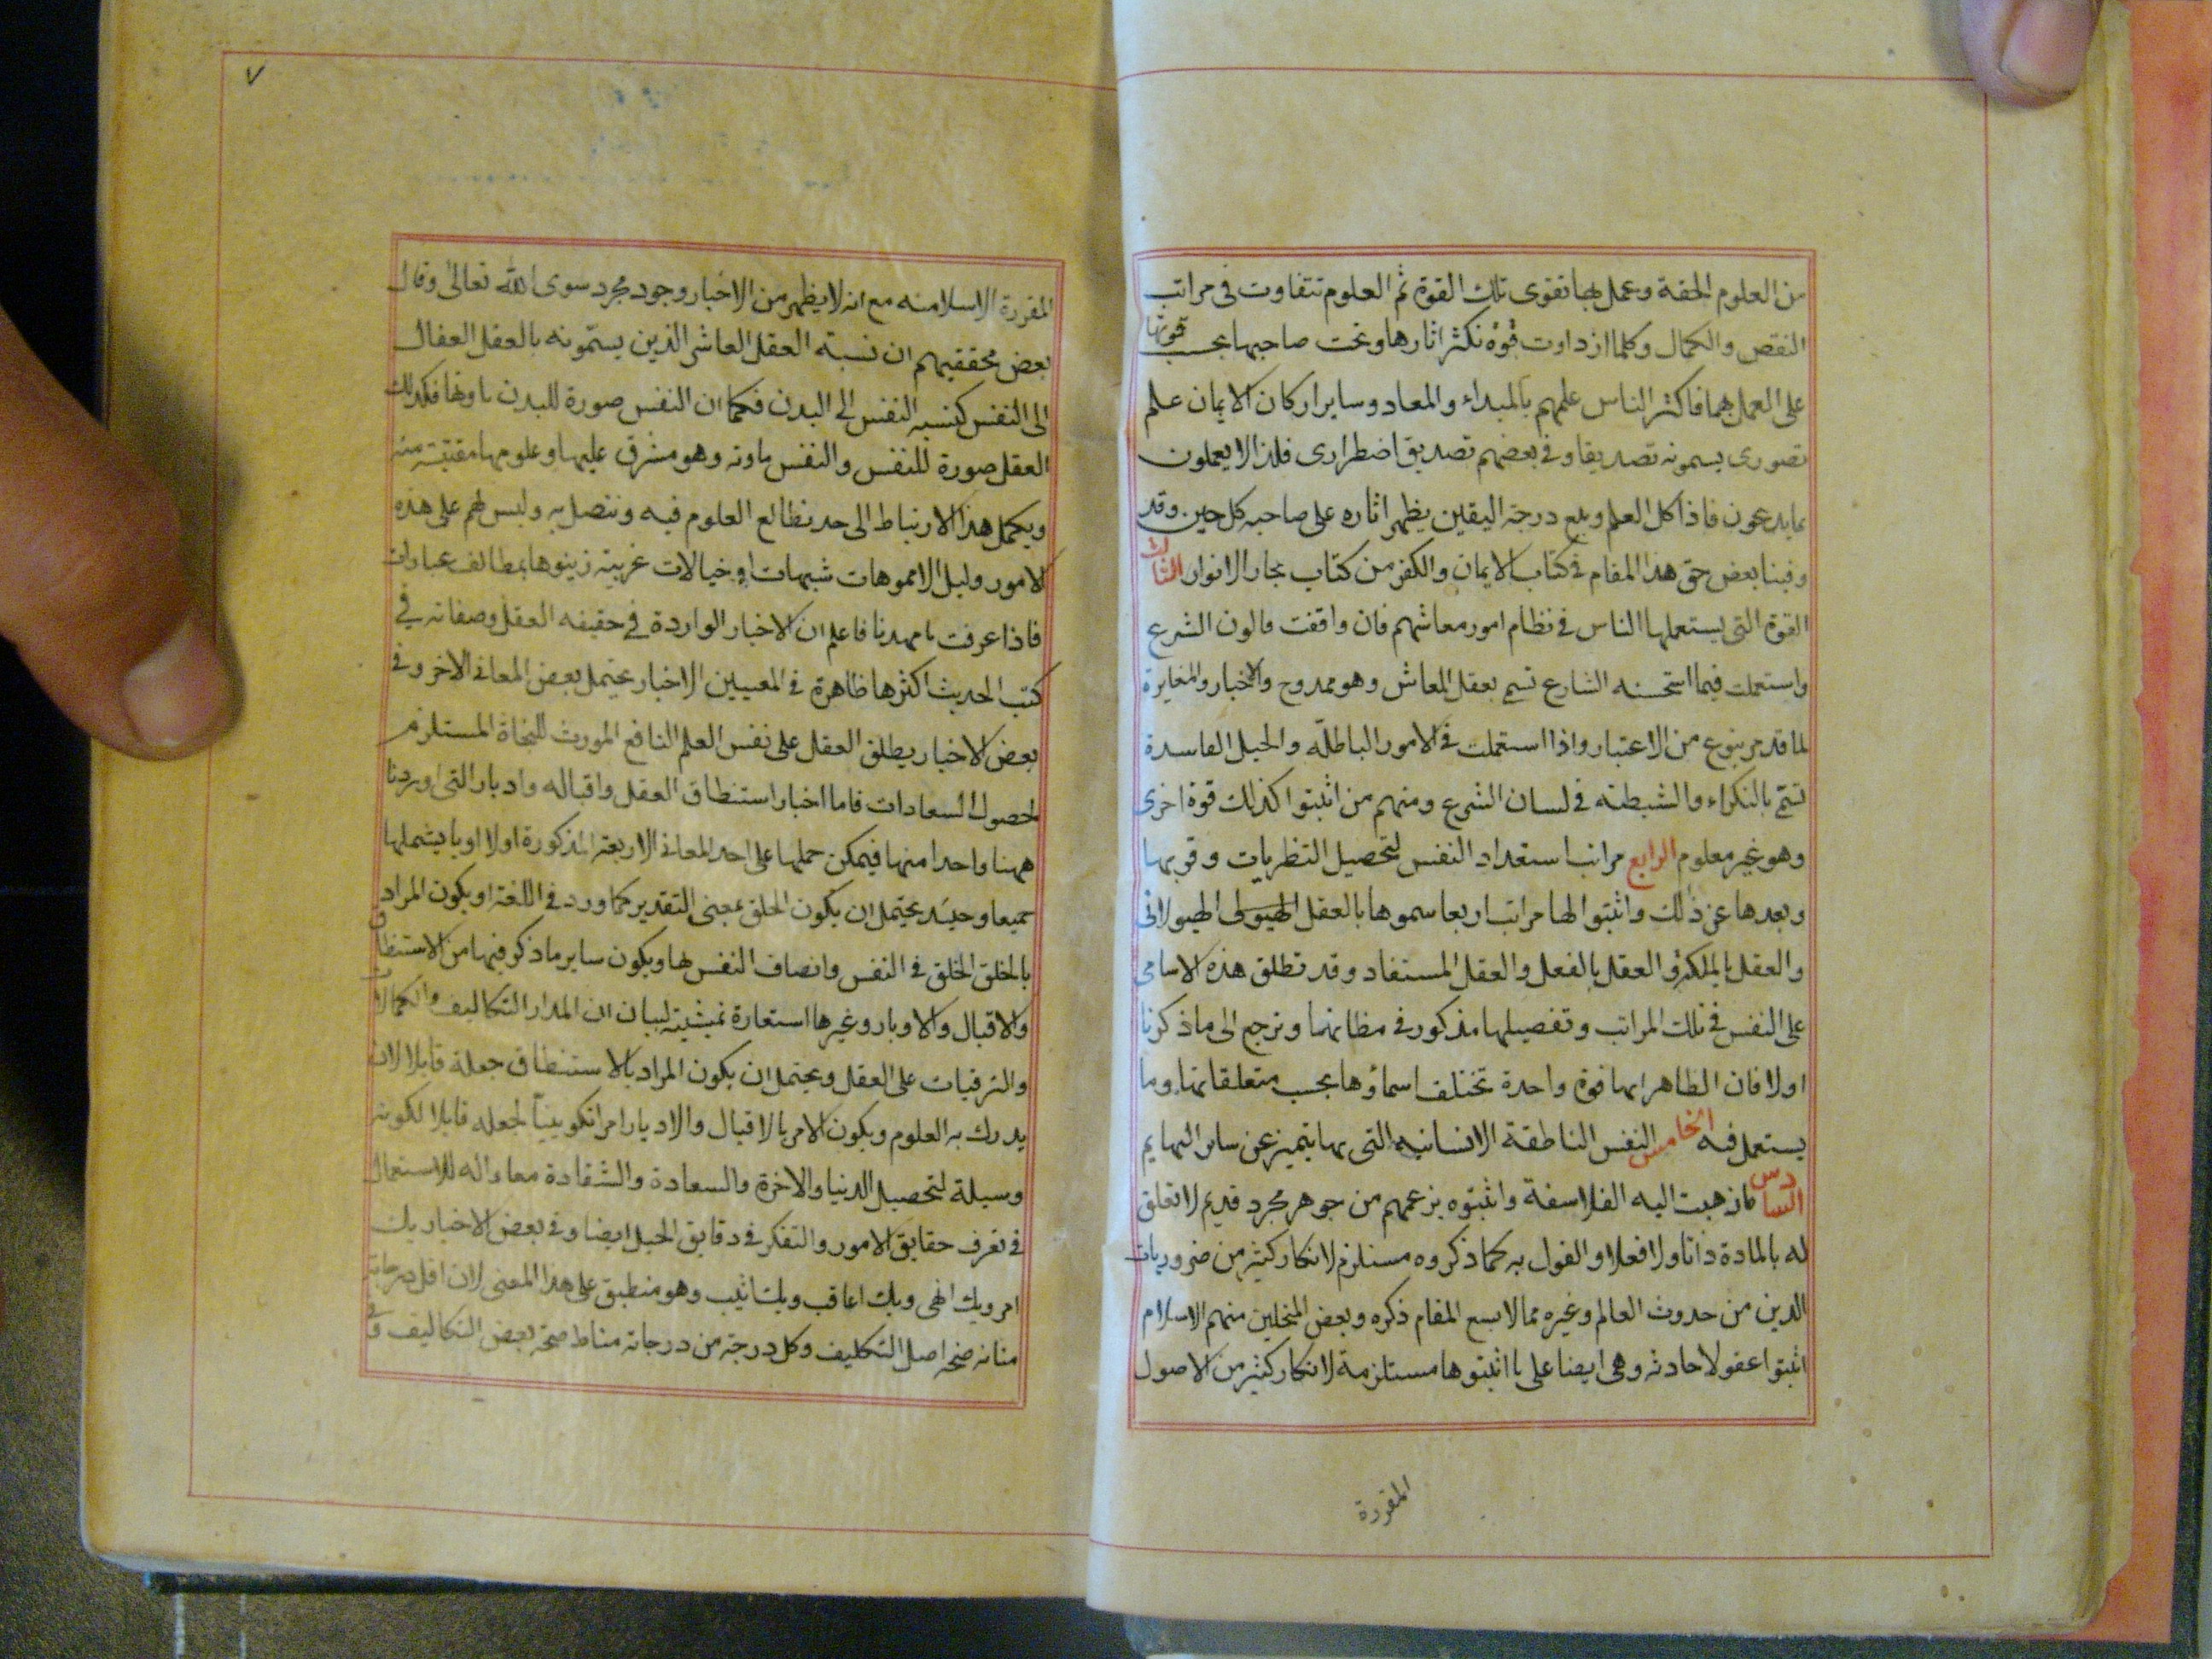 من العلوم الحقة وعمل بها تقوى تلك القوة ثم العلوم تتفاوت فى مراتب
النقص والكمال وكلما ازداوت قوة تكثر اثارها وتحث صاحبها بحسب قوتها
على العمل بهما فاكثر الناس علمهم بالمبداء والمعاد وساير اركان الايمان علم
تصورى يسمونه تصديقا وفى بعضهم تصديق اضطرارى فلذا لا يعملون
بما يدعون فاذا كل العلم وبلغ درجة اليقين يظهر اثاره على صاحبه كل حين وقد
وفينا بعض حق هذا المقام فى كتاب الايمان والكفر من كتاب بحار الانوار الثالث
القوة التى يستعملها الناس فى نظام امور معاشهم فان وافقت قانون الشرع
واستعملت فيما استحسنه الشارع تسمى بعقل المعاش وهو ممدوح والاخبار والمغايرة
لما قد مر بنوع من الاعتبار واذا استعملت فى الامور الباطلة والحيل الفاسدة
تسمى بالنكراء والشيطنة فى لسان الشرع ومنهم من اثبتوا كذلك قوة اخرى
وهو غير معلوم الرابع مراتب استعداد النفس لتحصيل النظريات وقربها
وبعدها عن ذلك واثبتوا لها مراتب اربعا سموها بالعقل الهيولى الهيولانى
والعقل بالملكة والعقل بالفعل والعقل المستفاد وقد تطلق هذه الاسامى
على النفس فى تلك المراتب وتفصيلها مذكور فى مظانهما وترجع الى ما ذكرنا
اولا فان الظاهر انها قوة واحدة تختلف اسماؤها بحسب متعلقاتها وما
يستعمل فيه الخامس النفس الناطقة الانسانيه التى بها يتميز عن ساير البهايم
السادس ما ذهبت اليه الفلاسفة واثبتوه بزعمهم من جوهر مجرد قديم لا تعلق
له بالمادة ذاتا ولا فعلا والقول به كما ذكروه مستلزم لانكار كثير من ضروريات
الدين من حدوث العالم وغيره مما لا يسع المقام ذكره وبعض المنتحلين منهم الاسلام
اثبتوا عقولا حادثه وهى ايضا على ما اثبتوها مستلزمة لانكار كثير من الاصول
المقررة
٧
المقررة الاسلامنه مع انه لا يظهر من الاخبار وجود مجرد سوى الله تعالى وقال
بعض محققيهم ان نسبة العقل العاشر الذين يسمّونه بالعقل الفعال
الى النفس كنسبه النفس الى البدن فكما ان النفس صورة للبدن مادتها فكذلك
العقل صورة للنفس والنفس مادته وهو مشرق عليها وعلومها مقتبسة منه
ويكمل هذا الارتباط الى حد تطالع العلوم فيه وتتصل به وليس لهم على هذه
الامور دليل الا مموهات شبهات او خيالات غريبة زينوها بلطائف عبارات
فاذا عرفت ما مهدنا فاعلم ان الاخبار الواردة فى حقيقه العقل وصفاته فى
كتب الحديث اكثرها ظاهرة فى المعنيين الاخبار يحتمل بعض المعانى الاخر وفى
بعض الاخبار يطلق العقل على نفس العلم النافع المورث للنجاة المستلزم
لحصول السعادات فاما اخبار استنطاق العقل واقباله وادباره التى اوردنا
ههنا واحدا منها فيمكن حملها على احد المعانى الاربعة المذكورة اولا او ما يشملها
جميعا وحينئذ يحتمل ان يكون الخلق بمعنى التقدير كما ورد فى اللغة او يكون المراد
بالخلق الخلق فى النفس واتصاف النفس بها ويكون ساير ما ذكر فيها من الاستنطاق
والاقبال والادبار وغيرها استعارة تمثيلية لبيان ان المدار التكاليف والكمالات
والترقيات على العقل ويحتمل ان يكون المراد بالاستنطاق جعله قابلا لان
يدرك به العلوم ويكون الامر بالاقبال والادبار امرا تكوينياً لجعله قابلا لكونه
وسيلة لتحصيل الدنيا والاخرة والسعادة والشقادة معا واله للاستعمال
فى تعرف حقايق الامور والتفكر فى دقايق الحيل ايضا وفى بعض الاخبار بك
امر وبك انهى وبك اعاقب وبك اثيب وهو منطبق على هذا المعنى لان اقل درجاته
مناط صحة اصل التكليف وكل درجة من درجاته مناط صحة بعض التكاليف وفى